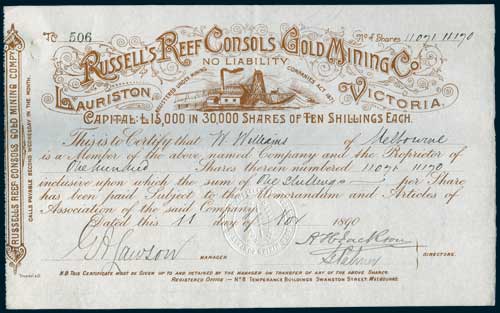 To 506
No. of Shares 11071 11170
RUSSELL'S REEF CONSOLS GOLD MINING Co.
NO LIABILITY
REGISTERED UNDER MINING COMPANIES ACT 1871
LAURISTON, VICTORIA.
CAPITAL: £15,000 IN 30,000 SHARES OF TEN SHILLINGS EACH.
This is to Certify that W. Williams of Melbourne
is a Member of the above named Company and the Proprietor of
One hundred Shares therein numbered 11071 11170
inclusive upon which the sum of One shillings per Share
has been paid Subject to the Memorandum and Articles of
Association of the said Company.
Dated this 11 day of Nov 1890
MANAGER
DIRECTORS.
N.B. THIS CERTIFICATE MUST BE GIVEN UP TO AND RETAINED BY THE MANAGER ON TRANSFER OF ANY OF THE ABOVE SHARES.
REGISTERED OFFICE — No. 8 TEMPERANCE BUILDINGS SWANSTON STREET MELBOURNE.
RUSSELLS REEF CONSOLS GOLD MINING COMPY
CALLS PAYABLE SECOND WEDNESDAY IN THE MONTH.